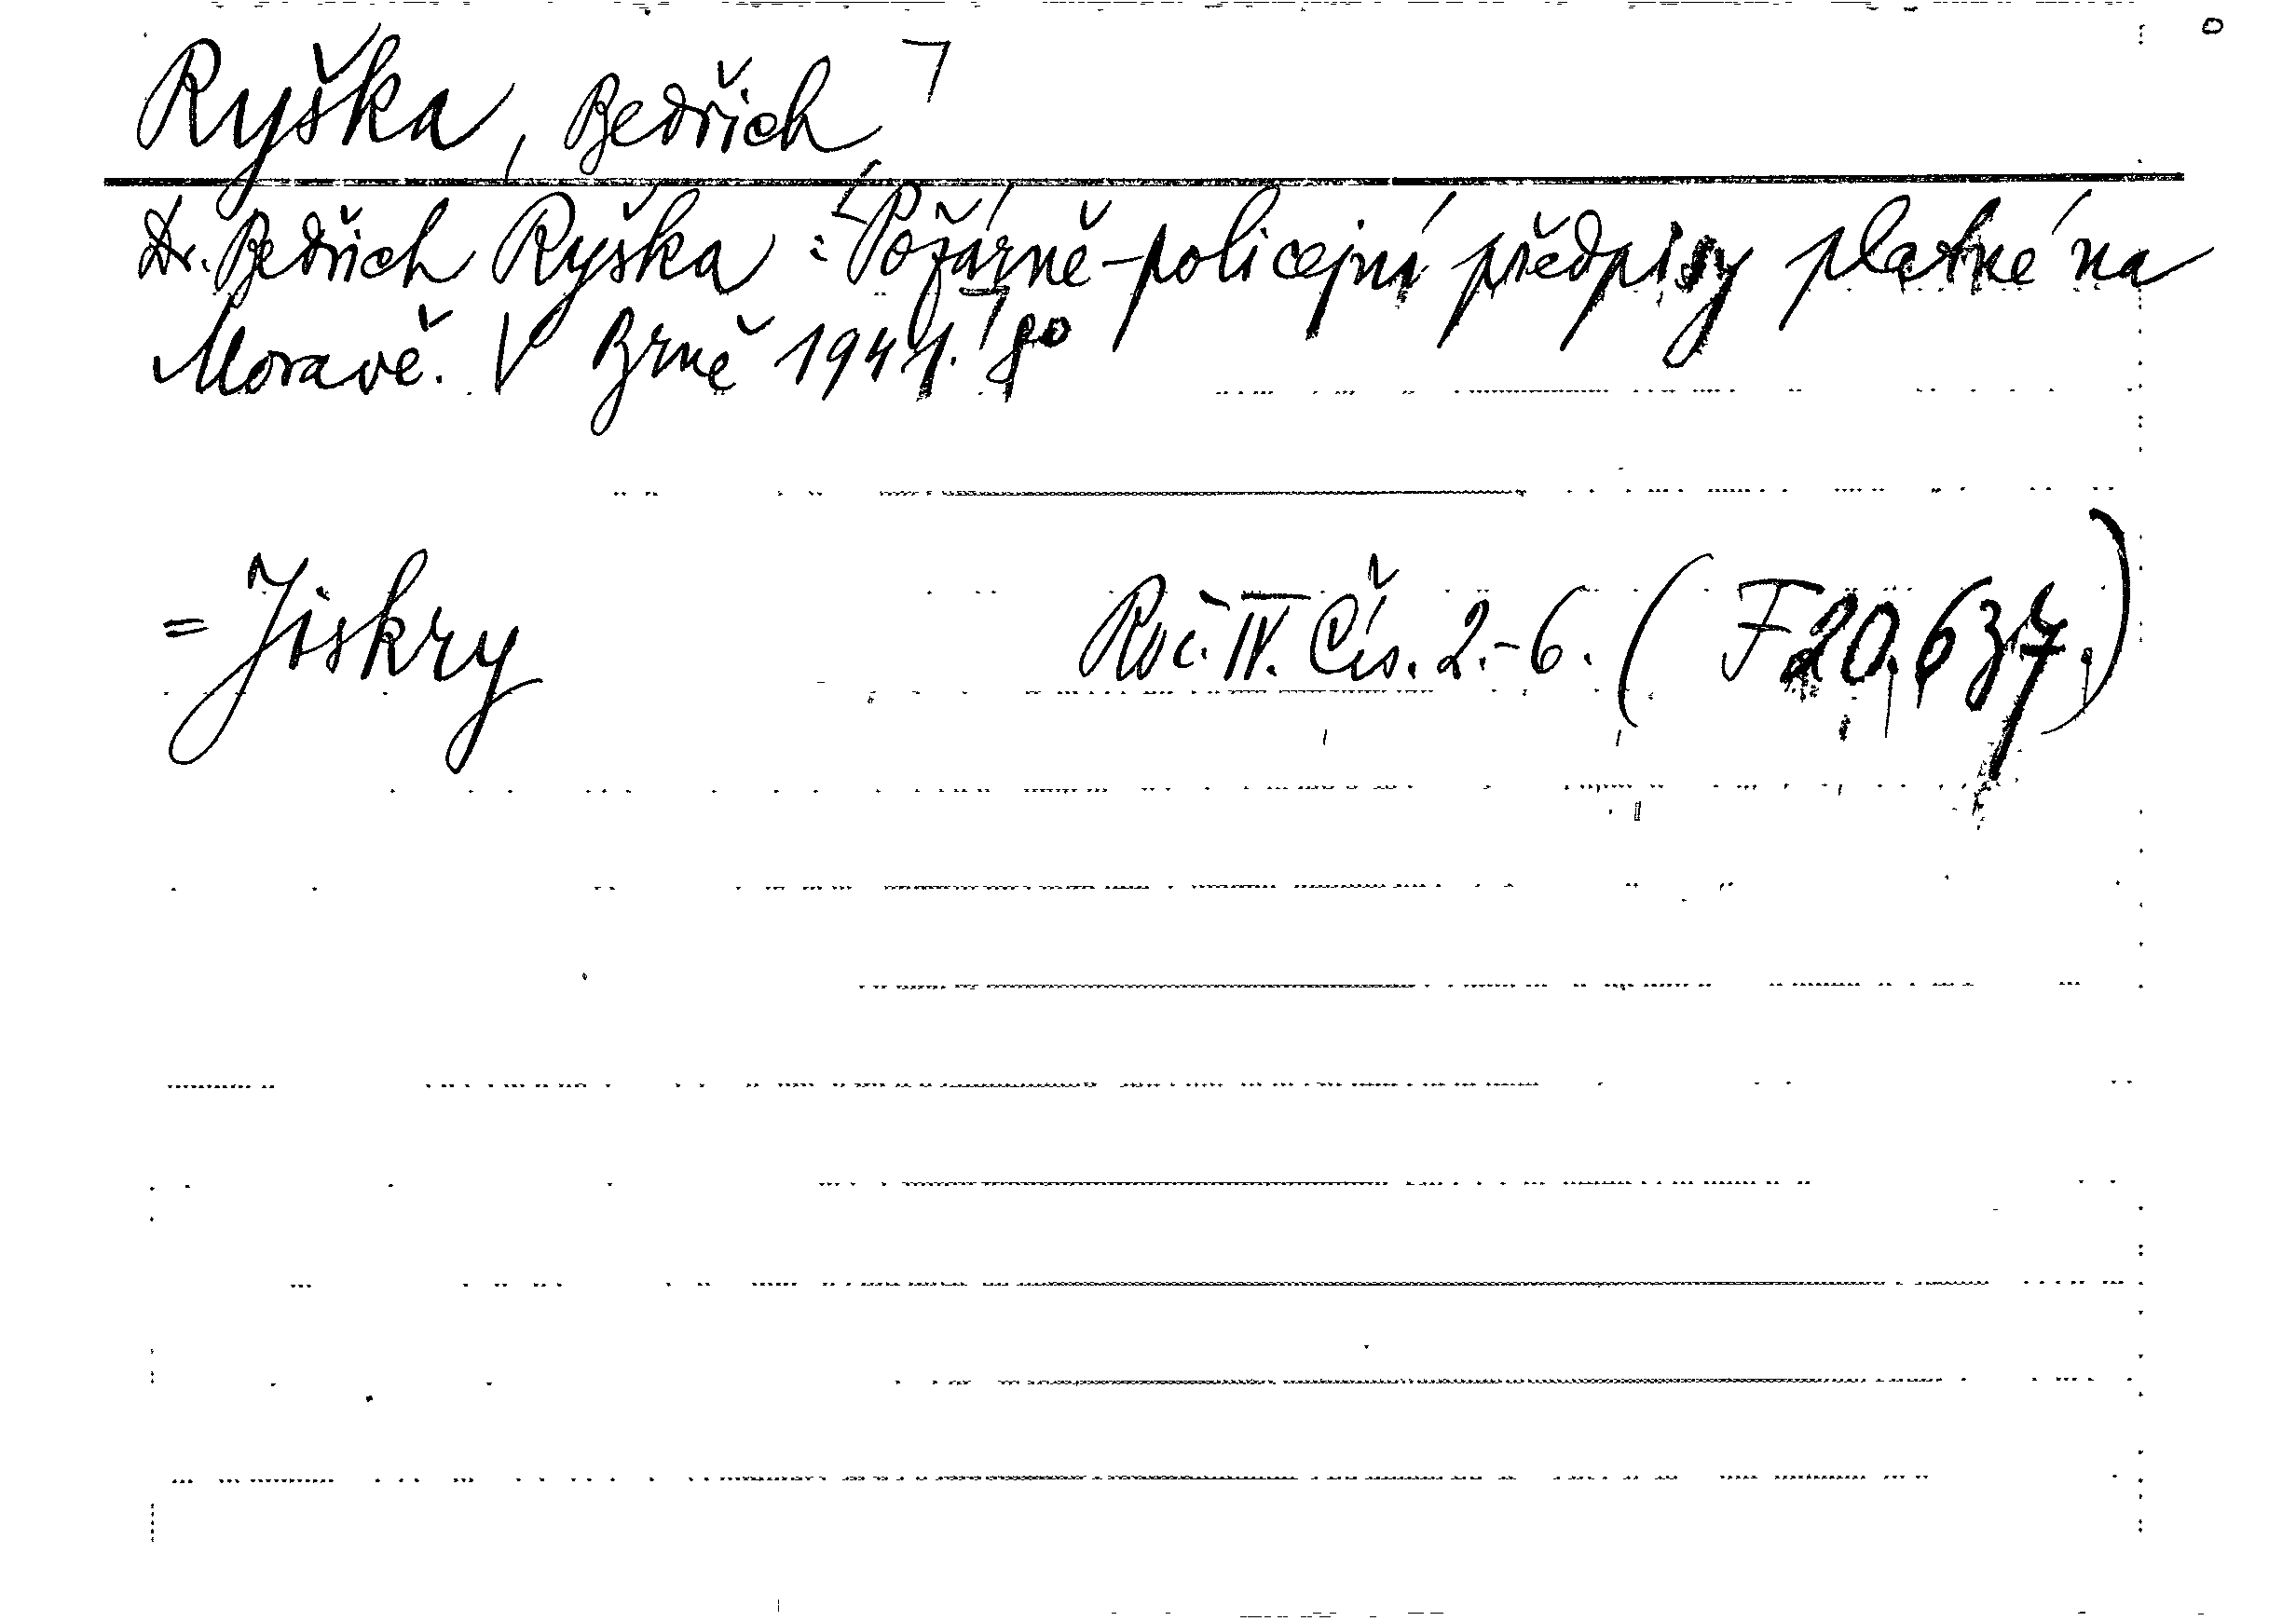 Ryška, Bedřich
Dr. Bedřich Ryška: Požárně-policejní předpisy platné na
Moravě. V Brně 1941. 8°
= Jiskry Roč. IV. Čís. 2.-6. (F 20.637.)